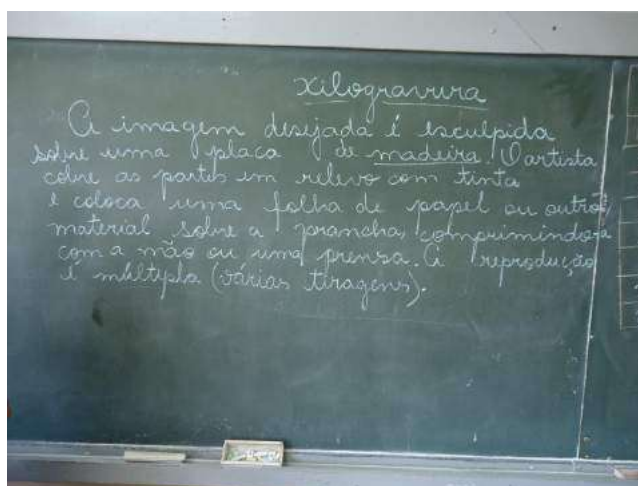 Xilogravura
A imagem desejada é esculpida
sobre uma placa de madeira. O artista
cobre as partes em relevo com tinta
e coloca uma folha de papel ou outro
material sobre a prancha, comprimindo-a
com a mão ou uma prensa. A reprodução
é múltipla (várias tiragens).